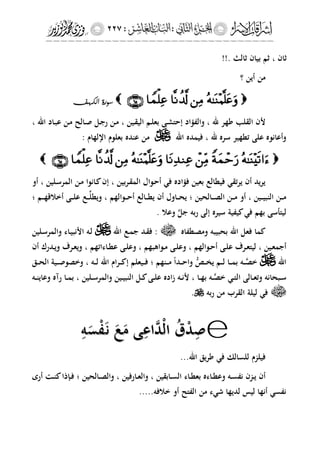 إشراقات الإسراء الجزء الثاني : الباب العاشر : ٢٢٧
ثان ، ثم بيان ثالث .!!
من أين ؟
﴿ وَعَلَّمْنَٰهُ مِن لَّدُنَّا عِلْمًا ﴾ سورة الكهف
لأن القلب طهر لله ، والفؤاد إحتشى بعلم اليقين ، من رجل صالح من عباد الله ،
وأعانوه على تطهير سره لله ، فيمده الله من عنده بعلوم الإلهام :
﴿ ءَاتَيْنَٰهُ رَحْمَةً مِّنْ عِندِنَا وَعَلَّمْنَٰهُ مِن لَّدُنَّا عِلْمًا ﴾
يريد أن يرتقي فيطالع بعين فؤاده في أحوال المقربين ، إن كانوا من المرسلين ، أو
من النبيين ، أو من الصالحين ؛ يحاول أن يطالع أحوالهم ، ويطلع على أخلاقهم ؛
ليتأسى بهم في كيفية سيره إلى ربه جلَّ وعلا .
كما فعل الله بحبيبه ومصطفاه ﷺ : فقد جمع الله له الأنبياء والمرسلين
أجمعين ، ليتعرف على أحوالهم ، وعلى مواهبهم ، وعلى عطاءاتهم ، ويعرف ويدرك أن
الله خصَّه بما لم يخصَّ أحداً منهم ؛ فيعلم إكرام الله له ، وخصوصية الحق
سبحانه وتعالى التي خصَّه بها ، لأنه زاده على كل النبيين والمرسلين ، بما رآه وعاينه
في ليلة القرب من ربه ﷺ.
صِدْقُ الدَّاعِى مَعَ نَفْسِهِ
فيلزم للسالك في طريق الله...
أن يزن نفسه وعطاءه بعطاء السابقين ، والعارفين ، والصالحين ؛ فإذا كنت أرى
نفسي أنها ليس لديها شيء من الفتح أو خلافه.....